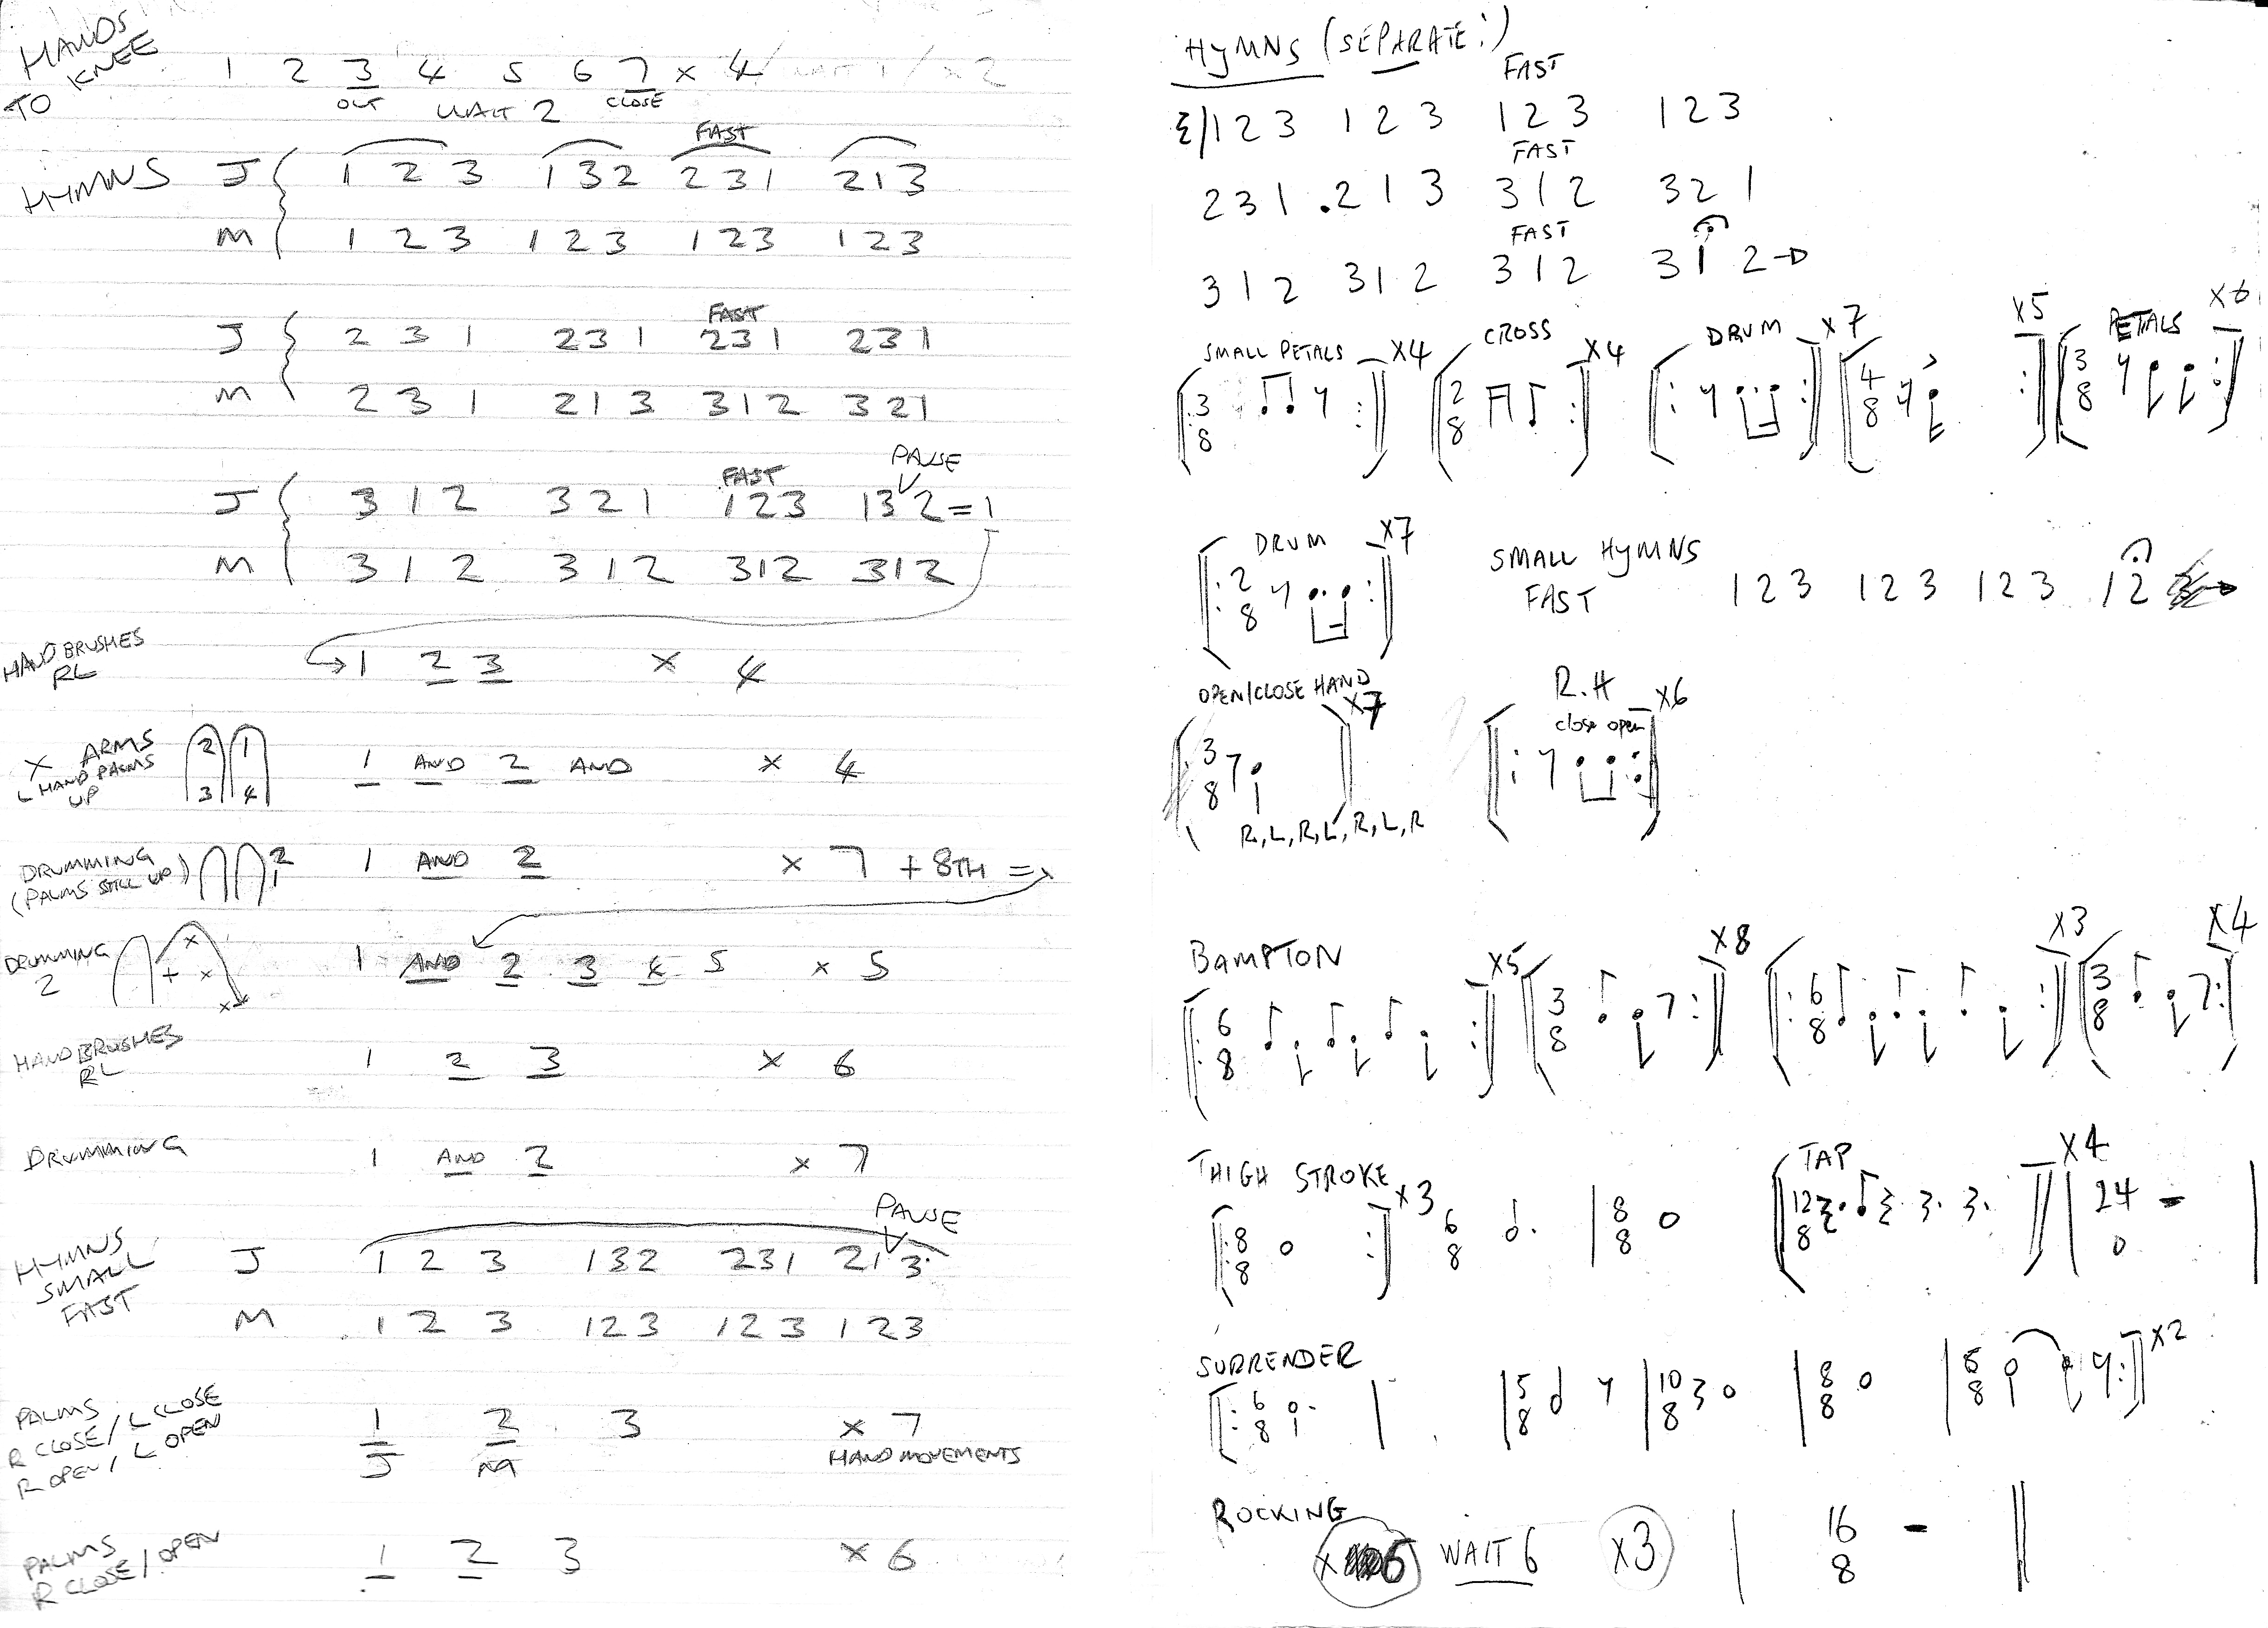 HANDS
TO KNEE
1 2 3 4 5 6 7 x 4
OUT WAIT 2 CLOSE
FAST
HYMNS J { 1 2 3 1 3 2 2 3 1 2 1 3
M 1 2 3 1 2 3 1 2 3 1 2 3
FAST
J { 2 3 1 2 3 1 2 3 1 2 3 1
M 2 3 1 2 1 3 3 1 2 3 2 1
FAST PAUSE
J { 3 1 2 3 2 1 1 2 3 1 3 2 = 1
M 3 1 2 3 1 2 3 1 2 3 1 2
HAND BRUSHES
RL
1 2 3 x 4
X ARMS
L HAND PALMS
UP
2 1
3 4
1 AND 2 AND x 4
DRUMMING
(PALMS STILL UP)
2
1
1 AND 2 x 7 + 8TH =
DRUMMING
2
x
+ x
x
1 AND 2 3 4 5 x 5
HAND BRUSHES
RL
1 2 3 x 6
DRUMMING 1 AND 2 x 7
PAUSE
HYMNS
SMALL
FAST
J 1 2 3 1 3 2 2 3 1 2 1 3
M 1 2 3 1 2 3 1 2 3 1 2 3
PALMS
R CLOSE / L CLOSE
R OPEN / L OPEN
1 2 3 x 7
J M HAND MOVEMENTS
PALMS
R CLOSE / OPEN
1 2 3 x 6
HYMNS (SEPARATE:)
FAST
1 2 3 1 2 3 1 2 3 1 2 3
FAST
2 3 1 . 2 1 3 3 1 2 3 2 1
FAST
3 1 2 3 1 2 3 1 2 3 1 2
SMALL PETALS X4 CROSS X4 DRUM X7 X5 PETALS X6
3 2 4 3
8 8 8 8
DRUM X7
2
8
SMALL HYMNS
FAST
1 2 3 1 2 3 1 2 3 1 2
OPEN/CLOSE HAND
X7
3
8
R, L, R, L, R, L, R
R.H
X6
close open
BAMPTON X5 X8 X3 X4
6 3 6 3
8 8 8 8
THIGH STROKE X3 TAP X4
8 6 8 12 24 -
8 8 8 8 0
SURRENDER X2
6 5 10 8 8
8 8 8 8 8
ROCKING
x 6 WAIT 6 X3 16 -
8